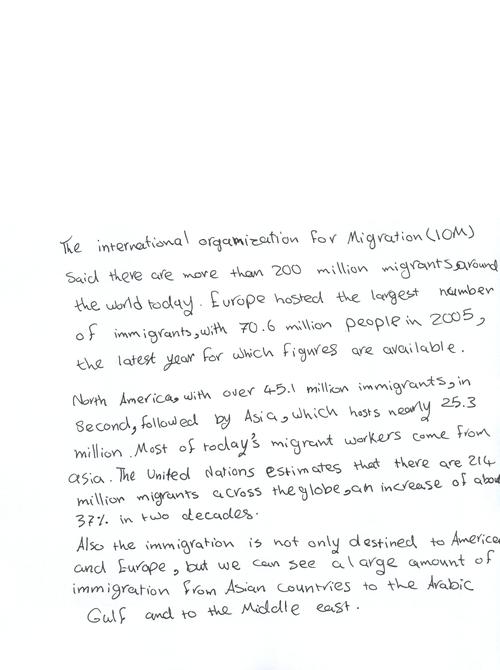 The international organization for Migration (IOM)
Said there are more than 200 million migrants around
the world today. Europe hosted the largest number
of immigrants, with 70.6 million people in 2005,
the latest year for which figures are available.
North America, with over 45.1 million immigrants, in
Second, followed by Asia, which hosts nearly 25.3
million. Most of today's migrant workers come from
asia. The United Nations estimates that there are 214
million migrants across the globe, an increase of about
37% in two decades.
Also the immigration is not only destined to America
and Europe, but we can see a large amount of
immigration from Asian countries to the Arabic
Gulf and to the Middle east.